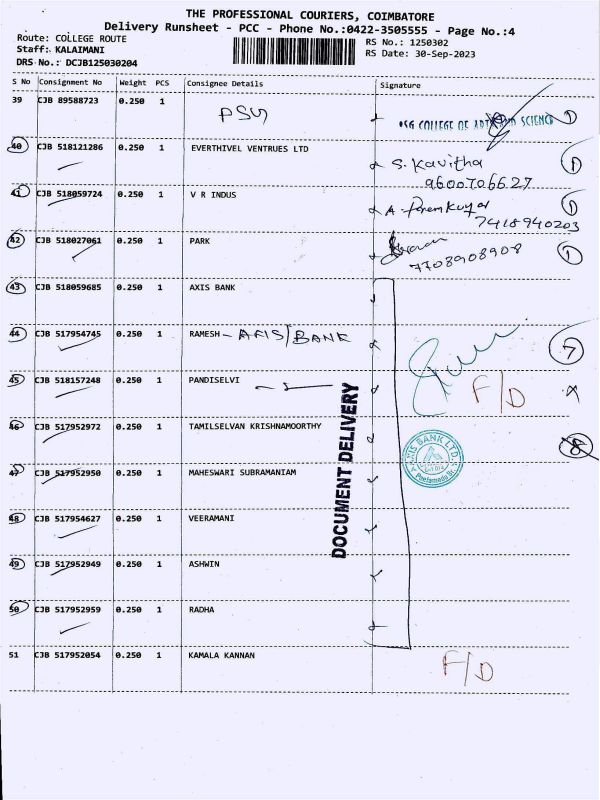 THE PROFESSIONAL COURIERS, COIMBATORE
Delivery Runsheet - PCC - Phone No.:0422-3505555 - Page No.:4
Route: COLLEGE ROUTE
RS No.: 1250302
Staff: KALAIMANI
RS Date: 30-Sep-2023
DRS No.: DCJB125030204
S No Consignment No Weight PCS Consignee Details Signature
39 CJB 89588723 0.250 1 PSG
PSG COLLEGE OF ARTS AND SCIENCE 1
40 CJB 518121286 0.250 1 EVERTHIVEL VENTRUES LTD S. Kavitha 1
9600706627
41 CJB 518059724 0.250 1 V R INDUS A. Premkumar 1
7418940203
42 CJB 518027061 0.250 1 PARK
7708908908 1
43 CJB 518059685 0.250 1 AXIS BANK
44 CJB 517954745 0.250 1 RAMESH - AXIS/BANK 7
45 CJB 518157248 0.250 1 PANDISELVI F/D
46 CJB 517952972 0.250 1 TAMILSELVAN KRISHNAMOORTHY 8
AXIS BANK LTD.
47 CJB 517952950 0.250 1 MAHESWARI SUBRAMANIAM
DOCUMENT DELIVERY
48 CJB 517954627 0.250 1 VEERAMANI
49 CJB 517952949 0.250 1 ASHWIN
50 CJB 517952959 0.250 1 RADHA
51 CJB 517952054 0.250 1 KAMALA KANNAN F/D